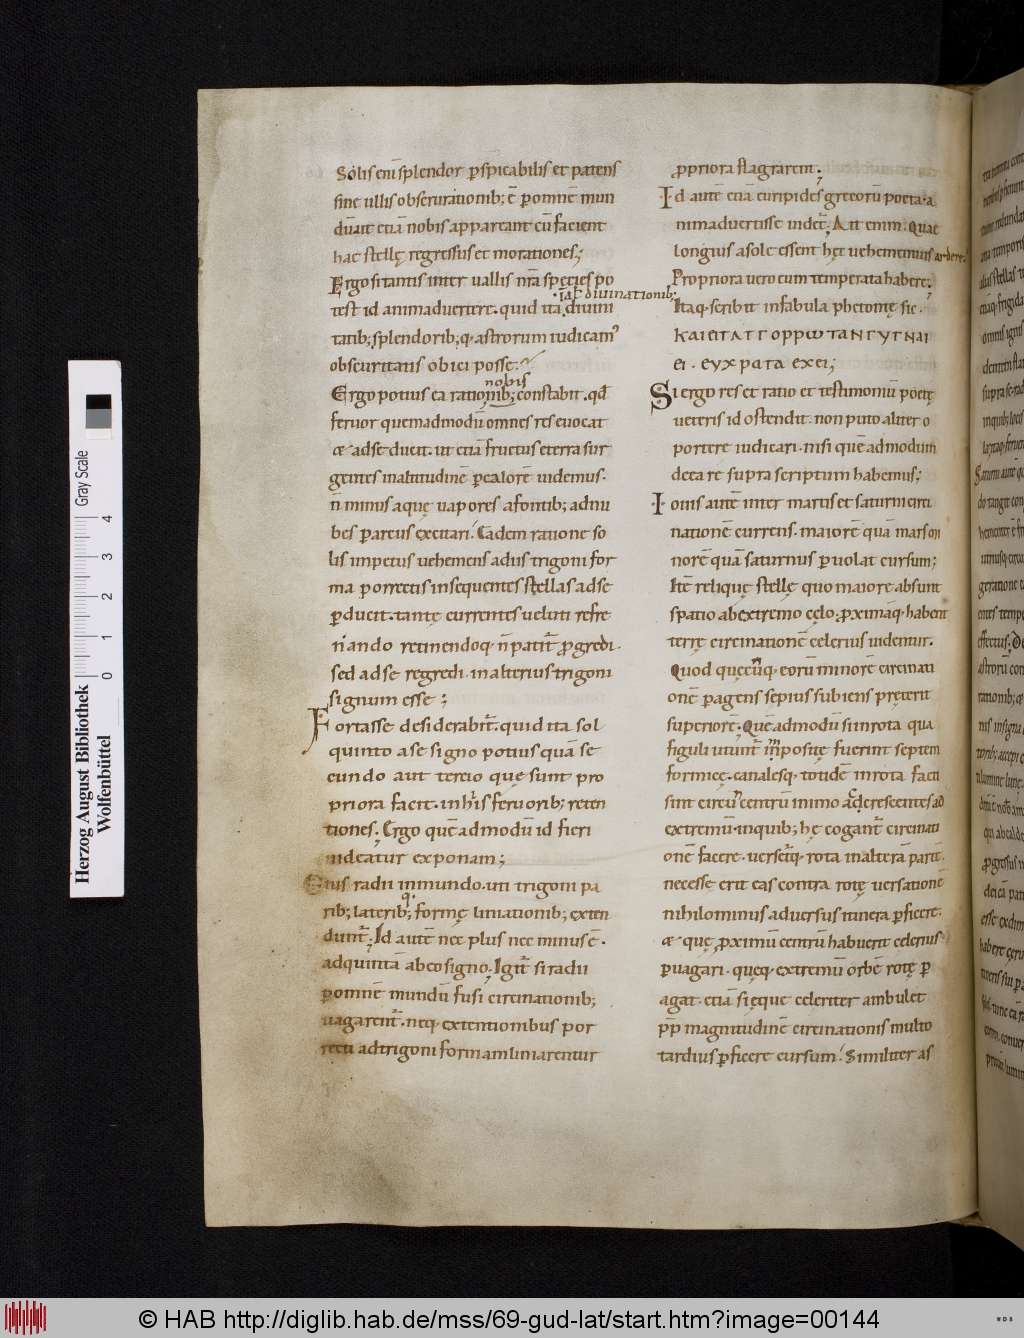 Solis eni splendor pspicabilis et patens
sine ullis obscurationib; ē p omnē mun
dū aut etiā nobis appareant cū facient
hae stellę regressus et morationes;
Ergo si tantis inter uallis nrā species po
test id animaduertere. quid ita diuini
iās diuinationib;
tatib; splendorib; q; astrorum iudicam
obscuritatis obici posse.
nobis
Ergo potius ea ratio nib; constabit. qđ
feruor quemadmodū omnes res euocat
& adse ducit. ut etiā fructus eterra sur
gentes in altitudinē p calorē uidemus.
n̄ minus aquę uapores a fontib; ad nu
bes p arcus excitari. Eadem ratione so
lis impetus uehemens adiis trigoni for
ma porrectis insequentes stellas adse
pducit. tantę currentes ueluti refre
nando retinendoq. n̄ patit̄ pgredi.
sed adse regredi. in alterius trigoni
signum esse;
Fortasse desiderabit̄. quid ita sol
quinto a se signo potius quā se
cundo aut tercio que sunt pro
priora facit. in his feruorib; reten
tiones. Ergo quē admodū id fieri
uideatur exponam;
Eius radii in mundo. uti trigoni pa
rib; laterib; formę liniationib; exten
dunt̄. Id autē nec plus nec minus ē.
ad quintā ab eo signo. Igit̄ si radii
p omnē mundū fusi circinationib;
uagarent̄. neq. extentionibus por
recti ad trigoni formam liniarentur
ppriora flagrarent.
Id autē etiā euripides grecorū poeta. a
nimaduertisse uidet̄. Ait enim. Quae
longius a sole essent hęc uehementius ardere.
Propriora uero eum temperata habere.
Itaq. scribit in fabula phetontę sic.
ΚΑΙΕΙΤΛΤΓΟΡΡΩΤΑΝΓΥΓΝΑΙ
ΕΙ. ΕΥΧΡΑΤΑ ΕΧΕΙ;
Si ergo res et ratio et testimoniū poetę
ueteris id ostendit. non puto aliter o
portere iudicari. nisi quē admodum
de ea re supra scriptum habemus;
Iouis autē inter martis et saturni circi
nationē currens. maiorē quā mars mi
norē quā saturnus p uolat cursum;
Itē reliquę stellę quo maiore absunt
spatio ab extremo cęlo. pximāq. habent
terrę circinationē celerius uidentur.
Quod quęcūq. eorū minorē circinati
onē pagens sepius subiens pręterit
superiorē. Quē admodū si in rota qua
figuli utunt̄ impositę fuerint septem
formicę. canalesq. totidē in rota facti
sint circū centrum in imo accrescentes ad
extremū. in quib; hę cogant̄ circinati
onē facere. uersetq. rota in alterā partē.
necesse erit eas contra rotę uersationē
nihilominus aduersus itinera pficere.
& quę pximū centrū habuerit celerius
puagari. quęq. extremū orbē rotę p
agat. etiā si ęque celeriter ambulet
pp magnitudinē circinationis multo
tardius pficere cursum. Similiter as
Herzog August Bibliothek
Wolfenbüttel
Gray Scale
0 1 2 3 4
© HAB http://diglib.hab.de/mss/69-gud-lat/start.htm?image=00144